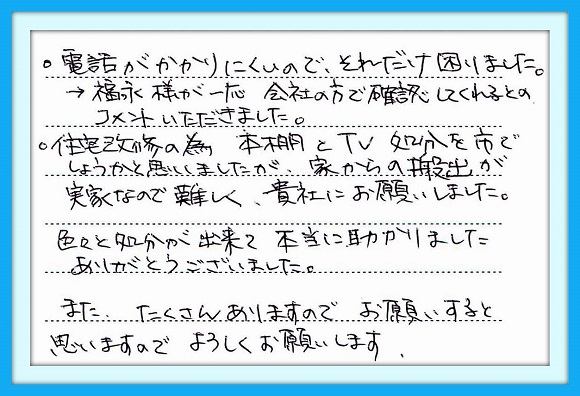 ○ 電話がかかりにくいので、それだけ困りました。
→ 福永様が一応 会社の方で確認してくれるとの
コメントいただきました。
○ 住宅改修の為 本棚とTV処分を市で
しようかと思いましたが、家からの搬出が
実家なので難しく、貴社にお願いしました。
色々と処分が出来て 本当に助かりました
ありがとうございました。
また、たくさんありますので お願いすると
思いますので よろしくお願いします.